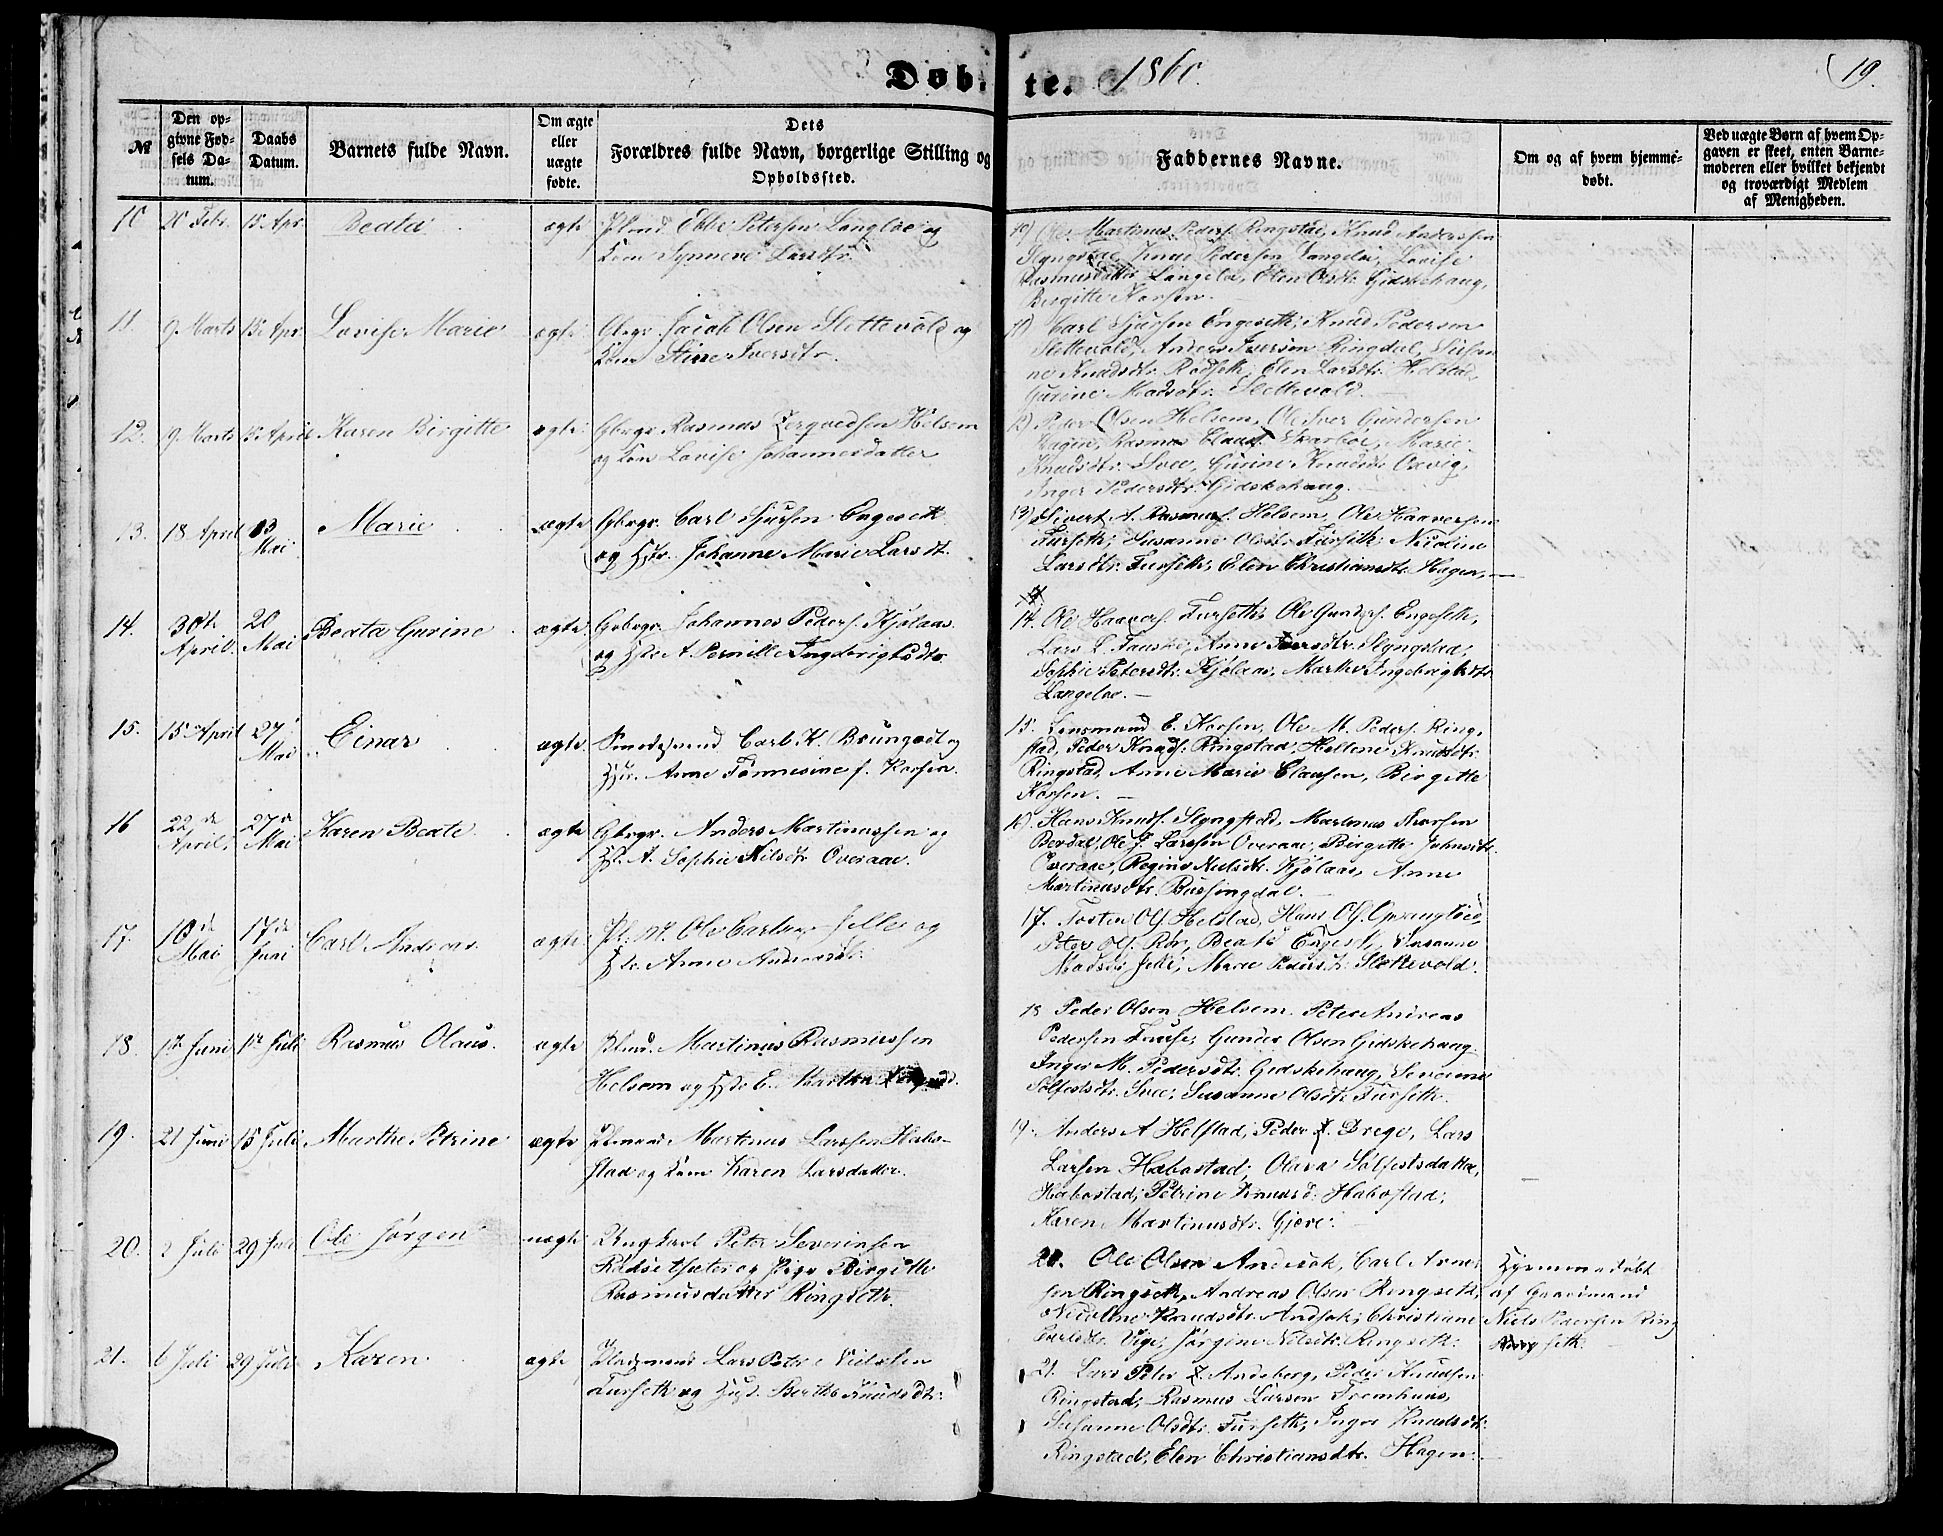 Døb-
te. 1860.
19.
№
Den op-
givne Fød-
sels Da-
tum.
Daabs
Datum.
Barnets fulde Navn.
Om ægte
eller
uægte
fødte.
Dets
Forældres fulde Navn, borgerlige Stilling og
Opholdssted.
Faddernes Navne.
Om og af hvem hjemme-
døbt.
Ved uægte Børn af hvem Op-
gaven er skeet, enten Barne-
moderen eller hvilket bekjendt
og troværdigt Medlem
af Menigheden.
10 20 Febr. 15 Apr. Beata ægte Plmd Ebbe Petersen Langeloe og
Kone Synneve Larsdtr.
10) Ole Martinus Peders. Ringstad, Knud Anderssen
Slyngstad, Knud Pedersen Langeloe, Lovise
Rasmusdatter Langeloe, Elen Olsdtr Gidskehaug,
Birgitte Korsen.
11. 9 Marts 15 Apr. Lovise Marie ægte Gbrgr. Jacob Olsen Slettevold og
Kone Stine Iversdtr.
11) Carl Sjursen Engeseth; Knud Pedersen
Slettevold, Anders Iversen Ringdal, Susan
ne Knudsdtr. Rødseth, Elen Larsdtr. Helstad,
Gurine Madsdtr. Slettevold.
12. 9 Marts 15 April Karen Birgitte ægte Gbrgr Rasmus Torquedsen Helsem
og Kone Lovise Johannesdatter
12) Peder Olsen Helsem, Ole Iver Gundersen
Hagen, Rasmus Claus. Skarboe, Marie
Knudsdtr. Svee, Gurine Knudsdtr Oxvig,
Inger Pedersdtr. Gidskehaug.
13. 18 April 13 Mai Marie ægte Gbrgr. Carl Sjursen Engeseth
og Hstr. Johanne Marie Larsdt.
13) Sivert A. Rasmus. Helsem, Ole Haaversen
Furseth; Susanne Olsdtr. Furseth; Nicoline
Larsdtr. Furseth; Elen Christiansdtr. Hagen.
14. 30th April. 20 Mai Beata Gurine ægte Gbrgr. Johannes Peders. Kjølaas
og Hstr A Pernille Ingebrigtsdtr
14. Ole Haavers. Furseth; Ole Gunders. Engeseth,
Lars L. Fauske, Anne Iversdtr. Slyngstad,
Sophie Petersdtr. Kjølaas, Marthe Ingebrigtsdtr
Langeloe.
15. 15 April 27 Mai Einar ægte Smedsmand Carl K. Brungodt og
Hstr. Anne Tønnesine f. Korsen.
15. Lensmand E. Korsen, Ole M. Peders. Ring-
stad, Peder Knuds. Ringstad, Hellene Knudsdtr.
Ringstad, Anne Marie Clausen, Birgitte
Korsen.
16 22de April. 27de Mai Karen Beate ægte Gbrgr. Anders Martinussen og
Hst. A. Sophie Nilsdtr Overaae.
16. Hans Knuds. Slyngstad, Martinus
Berdal, Ole J. Larssen Overaae, Birgitte Johnsdtr.
Overaae, Regine Nielsdtr. Kjølaas, Anne
Martinusdtr. Bussingdal.
17. 10de Mai 17de Juni Carl Andreas ægte Pl. M. Ole Carlsen og
Hstr. Anne Andersdtr.
17. Tosten Ols Helstad, Hans Ols.
Peter Ols. Rør, Beate Engeset, Susanne
Madsdtr, Marie Pedersdtr. Slettevold.
18. 17 Juni 15 Juli Rasmus Olaus. ægte Plmd. Martinus Rasmussen
Helsem og Hstr E. Martha
18 Peder Olsen Helsem. Peter Andreas
Pedersen Gunder Olsen Gidskehaug
Inger M. Pedersdtr. Gidskehaug, Severine
Solfestsdtr. Svee; Susanne Olsdtr. Furseth.
19. 21 Juni 15 Juli Marthe Petrine ægte Plmand Martinus Larssen Habo-
stad og Kone Karen Larsdatter.
19. Anders A Helstad, Peder Drege, Lars
Larsen Habostad, Olava Solfestsdatter,
Habostad; Petrine Knudsd. Habostad;
Karen Martinusdtr. Gjere.
20. 2 Juli 29 Juli Ole Jørgen uægte Ungkarl Peter Severinsen
Rødsetsæter og Pige Birgitte
Rasmusdatter Ringseth.
20. Ole Olsen Andsok, Carl Arne
sen Ringseth, Andreas Olsen Ringseth,
Nicoline Knudsdtr. Andsok; Christiane
Carlsdtr. Vige, Jørgine Nilsdtr. Ringseth.
Hjemmedøbt
af Gaardmand
Niels Pedersen Ring
seth.
21. 6 Juli 29 Juli Karen ægte Pladsmand Lars Petr. Nielsen
Furseth og Hus. Berthe Knudsdtr.
21. Lars Peter Andsberg, Peder Knudsen
Ringstad, Rasmus Larsen Fremhuus,
Susanne Olsdtr. Furseth; Inger Knudsdtr.
Ringstad; Elen Christiansdtr. Hagen.